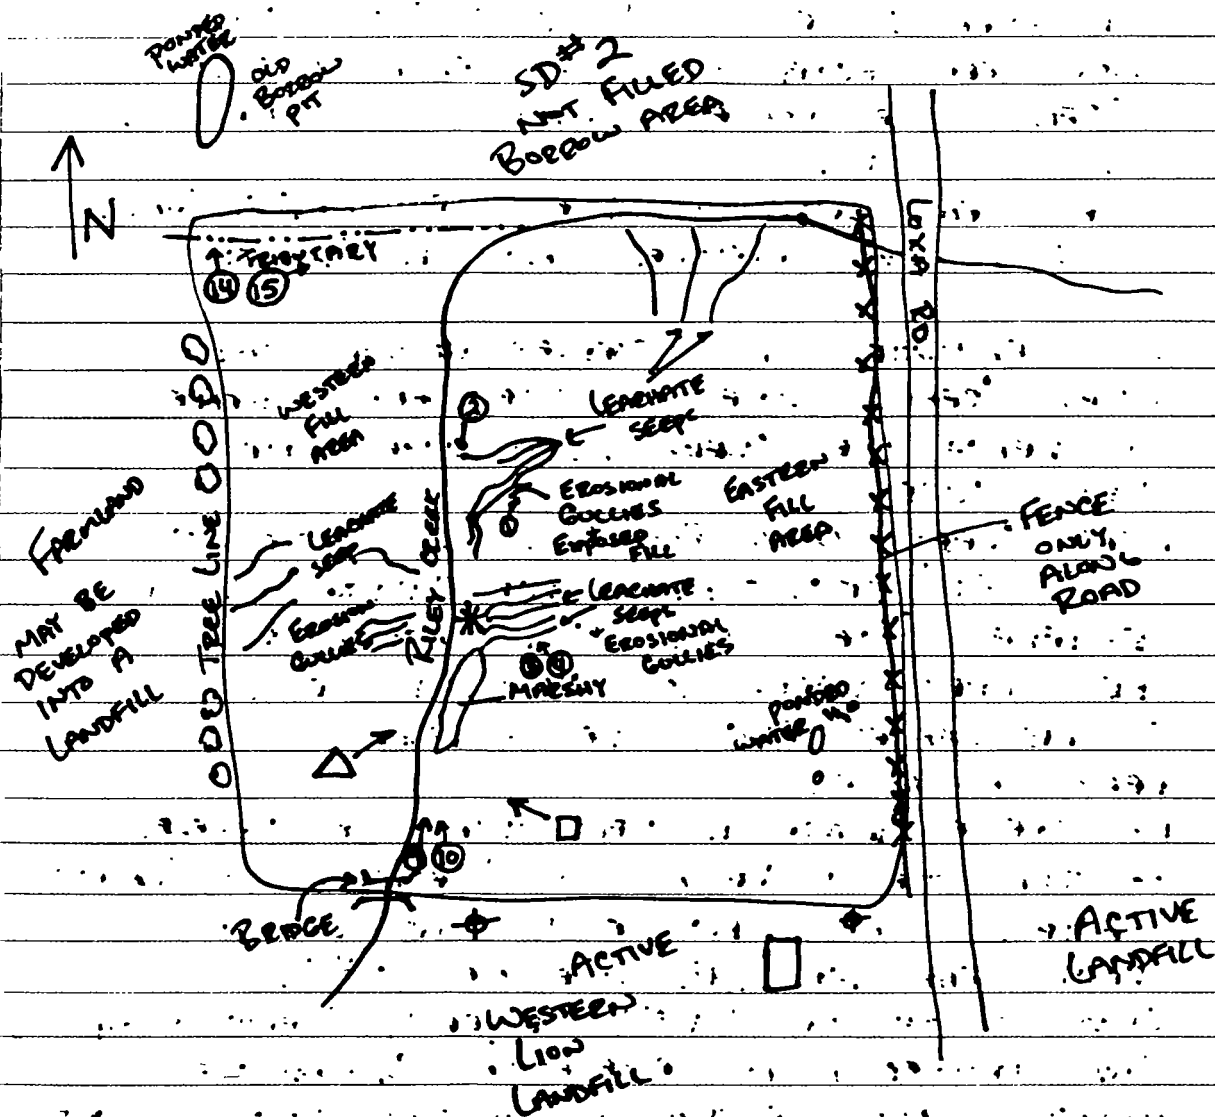 PONDED
WATER
OLD
BORROW
PIT
SD# 2
NOT FILLED
BORROW AREA
N
TRIBUTARY
14 15
LOXA RD.
WESTERN
FILL
AREA
2
LEACHATE
SEEPS
EROSIONAL
GULLIES
EXPOSED
FILL
1
EASTERN
FILL
AREA
FENCE
ONLY,
ALONG
ROAD
FARMLAND
MAY BE
DEVELOPED
INTO A
LANDFILL
TREE LINE
LEACHATE
SEEP
EROSION
GULLIES
RILEY CREEK
LEACHATE
SEEPS
+ EROSIONAL
GULLIES
MARSHY
PONDED
WATER
10
BRIDGE
ACTIVE
WESTERN
LION
LANDFILL
ACTIVE
LANDFILL